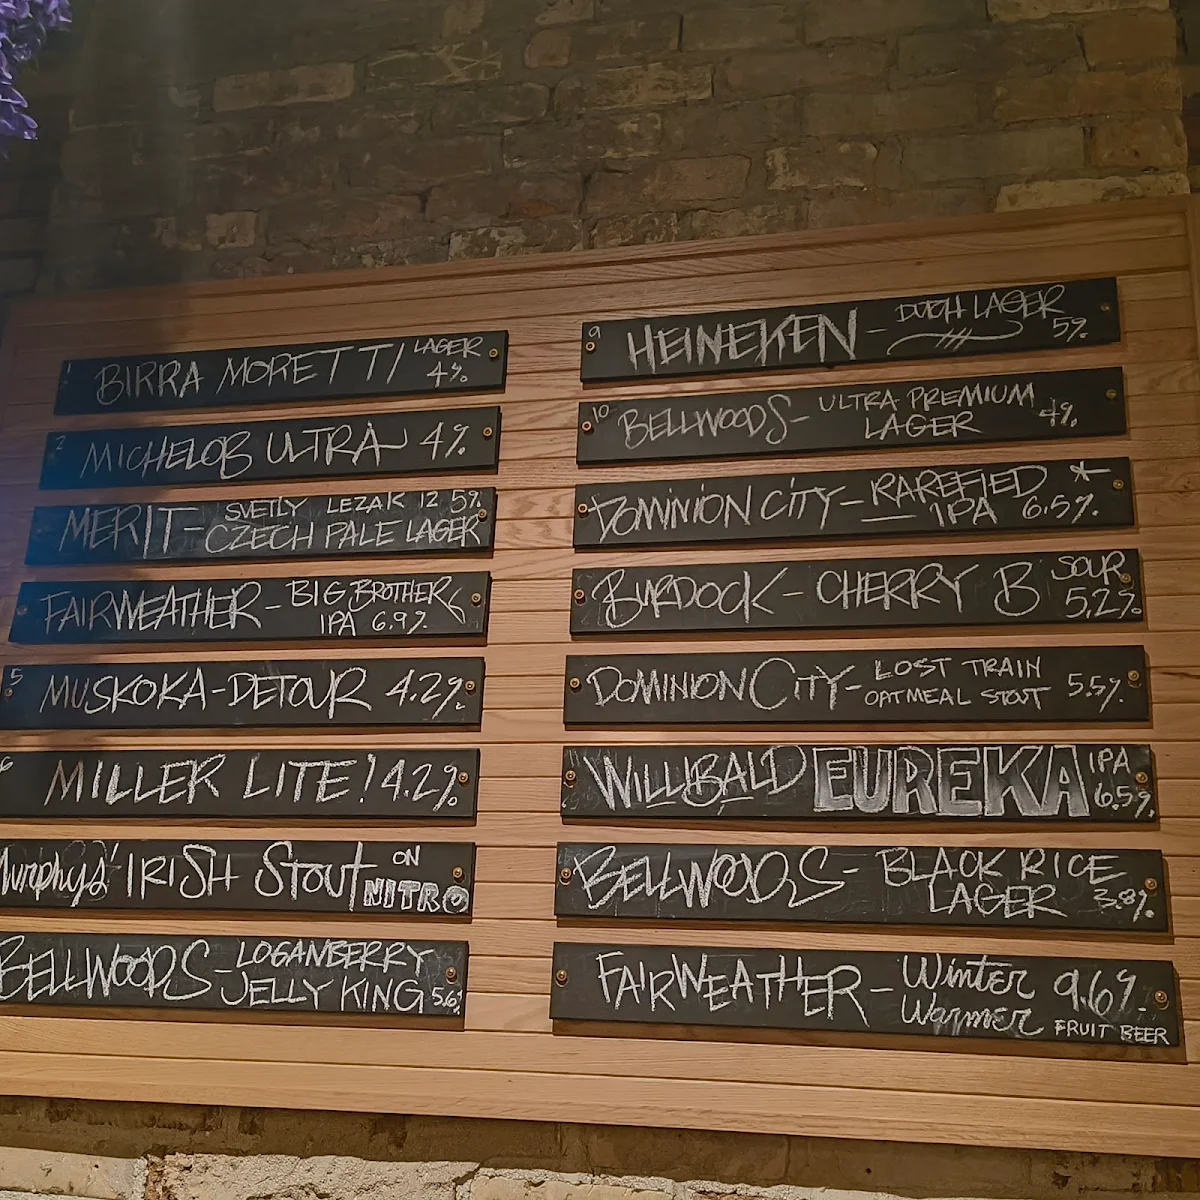 1 BIRRA MORETTI LAGER 4%
2 MICHELOB ULTRA 4%
MERIT - SVETLY LEZAK 12 5%
CZECH PALE LAGER
FAIRWEATHER - BIG BROTHER
IPA 6.9%
5 MUSKOKA - DETOUR 4.2%
MILLER LITE! 4.2%
Murphys' IRISH STOUT ON
NITRO
BELLWOODS - LOGANBERRY
JELLY KING 5.6%
9 HEINEKEN - DUTCH LAGER
5%
10 BELLWOODS - ULTRA PREMIUM
LAGER 4%
DOMINION CITY - RAREFIED *
IPA 6.5%
BURDOCK - CHERRY B SOUR
5.2%
DOMINION CITY - LOST TRAIN
OATMEAL STOUT 5.5%
WILLIBALD EUREKA IPA
6.5%
BELLWOODS - BLACK RICE
LAGER 3.8%
FAIRWEATHER - Winter 9.6%
Warmer FRUIT BEER